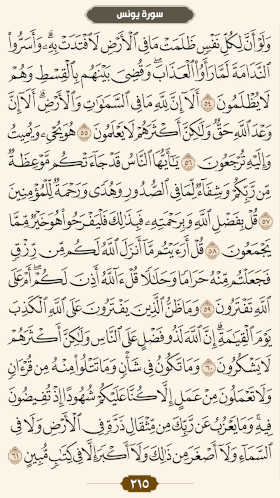 سورة يونس
وَلَوْ أَنَّ لِكُلِّ نَفْسٍ ظَلَمَتْ مَا فِي ٱلْأَرْضِ لَٱفْتَدَتْ بِهِۦۗ وَأَسَرُّوا۟
ٱلنَّدَامَةَ لَمَّا رَأَوُا۟ ٱلْعَذَابَۖ وَقُضِيَ بَيْنَهُم بِٱلْقِسْطِ وَهُمْ
لَا يُظْلَمُونَ ٥٤ أَلَآ إِنَّ لِلَّهِ مَا فِي ٱلسَّمَٰوَٰتِ وَٱلْأَرْضِۗ أَلَآ إِنَّ
وَعْدَ ٱللَّهِ حَقٌّ وَلَٰكِنَّ أَكْثَرَهُمْ لَا يَعْلَمُونَ ٥٥ هُوَ يُحْيِۦ وَيُمِيتُ
وَإِلَيْهِ تُرْجَعُونَ ٥٦ يَٰٓأَيُّهَا ٱلنَّاسُ قَدْ جَآءَتْكُم مَّوْعِظَةٌ
مِّن رَّبِّكُمْ وَشِفَآءٌ لِّمَا فِي ٱلصُّدُورِ وَهُدًى وَرَحْمَةٌ لِّلْمُؤْمِنِينَ
٥٧ قُلْ بِفَضْلِ ٱللَّهِ وَبِرَحْمَتِهِۦ فَبِذَٰلِكَ فَلْيَفْرَحُوا۟ هُوَ خَيْرٌ مِّمَّا
يَجْمَعُونَ ٥٨ قُلْ أَرَءَيْتُم مَّآ أَنزَلَ ٱللَّهُ لَكُم مِّن رِّزْقٍ
فَجَعَلْتُم مِّنْهُ حَرَامًا وَحَلَٰلًا قُلْ ءَآللَّهُ أَذِنَ لَكُمْۖ أَمْ عَلَى
ٱللَّهِ تَفْتَرُونَ ٥٩ وَمَا ظَنُّ ٱلَّذِينَ يَفْتَرُونَ عَلَى ٱللَّهِ ٱلْكَذِبَ
يَوْمَ ٱلْقِيَٰمَةِۗ إِنَّ ٱللَّهَ لَذُو فَضْلٍ عَلَى ٱلنَّاسِ وَلَٰكِنَّ أَكْثَرَهُمْ
لَا يَشْكُرُونَ ٦٠ وَمَا تَكُونُ فِي شَأْنٍ وَمَا تَتْلُوا۟ مِنْهُ مِن قُرْءَانٍ
وَلَا تَعْمَلُونَ مِنْ عَمَلٍ إِلَّا كُنَّا عَلَيْكُمْ شُهُودًا إِذْ تُفِيضُونَ
فِيهِۚ وَمَا يَعْزُبُ عَن رَّبِّكَ مِن مِّثْقَالِ ذَرَّةٍ فِي ٱلْأَرْضِ وَلَا فِي
ٱلسَّمَآءِ وَلَآ أَصْغَرَ مِن ذَٰلِكَ وَلَآ أَكْبَرَ إِلَّا فِي كِتَٰبٍ مُّبِينٍ ٦١
٢١٥